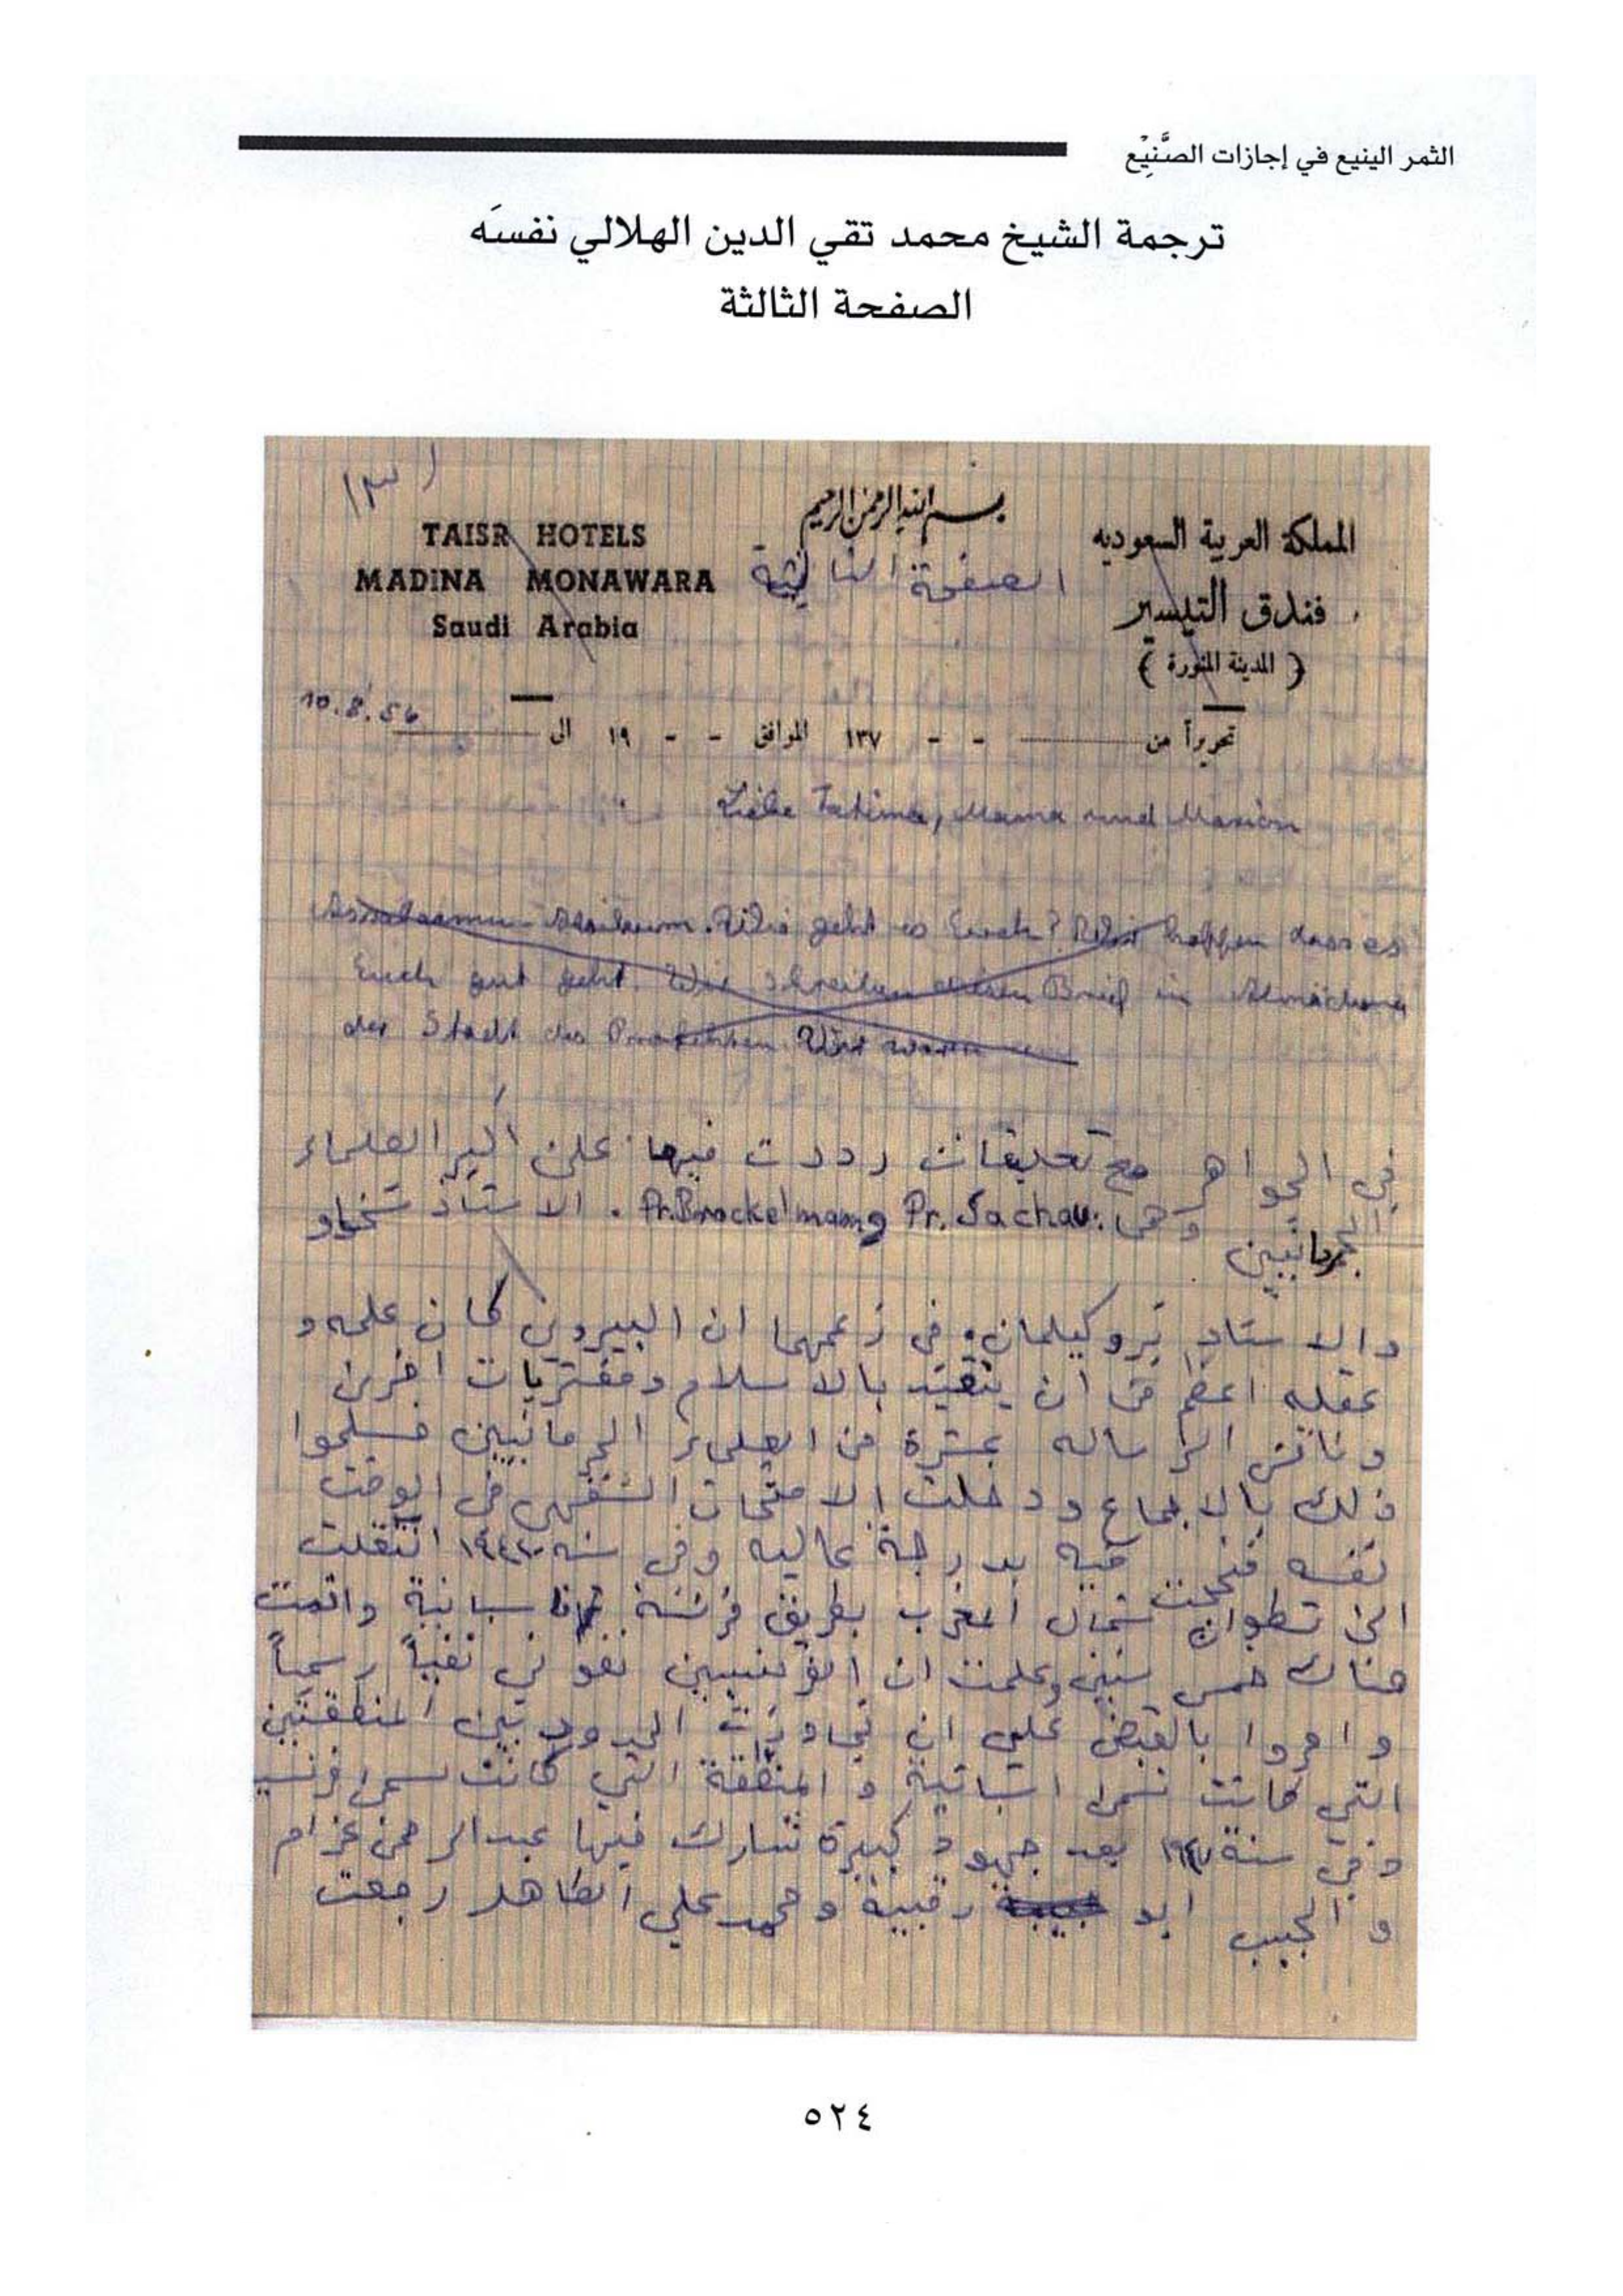 الثمر الينيع في إجازات الصَّنِيْع
ترجمة الشيخ محمد تقي الدين الهلالي نفسَه
الصفحة الثالثة
(٣)
بسم الله الرحمن الرحيم
المملكة العربية السعوديه
TAISR HOTELS
الصفحة الثالثة
فندق التيسير
MADINA MONAWARA
( المدينة المنورة )
Saudi Arabia
10.8.56
تحريراً من - - ١٣٧ الموافق - - ١٩ الى
Liebe Fatima, Mama und Marion
Assalaamu Alaikum. Wie geht es Euch? Wir hoffen dass es
Euch gut geht. Wir schreiben diesen Brief in
der Stadt des Propheten. Wir waren
في الجواهر مع تعليقات رددت فيها على أكبر العلماء
الجرمانيين وهما: Pr. Sachau و Pr. Brockelmann. الاستاذ سخاو
والاستاذ بروكيلمان. في زعمهما ان البيروني كان علمه و
عقله اعظم من ان يتقيد بالاسلام ومفتريات اخرى
وناقش الرساله عشرة من العلماء الجرمانيين فسلموا
ذلك بالاجماع ودخلت الامتحان الشفهي في الوقت
نفسه فنجحت فيه بدرجة عاليه وفي سنه ١٩٤٢ انتقلت
الى تطوان شمال المغرب بطريق فرنسة فاسبانية واقمت
هناك خمس سنين وعلمت ان الفرنسيين نفوني نفياً رسمياً
وامروا بالقبض علي ان تجاوزت الحدود بين المنطقتين
التي كانت تسمى اسبانية و المنطقة التي كانت تسمى فرنسية
وفي سنة ١٩٤٧ بعد جهود كبيرة شارك فيها عبد الرحمن عزام
و الحبيب ابو رقيبة ومحمد علي الطاهر رجعت
٥٢٤